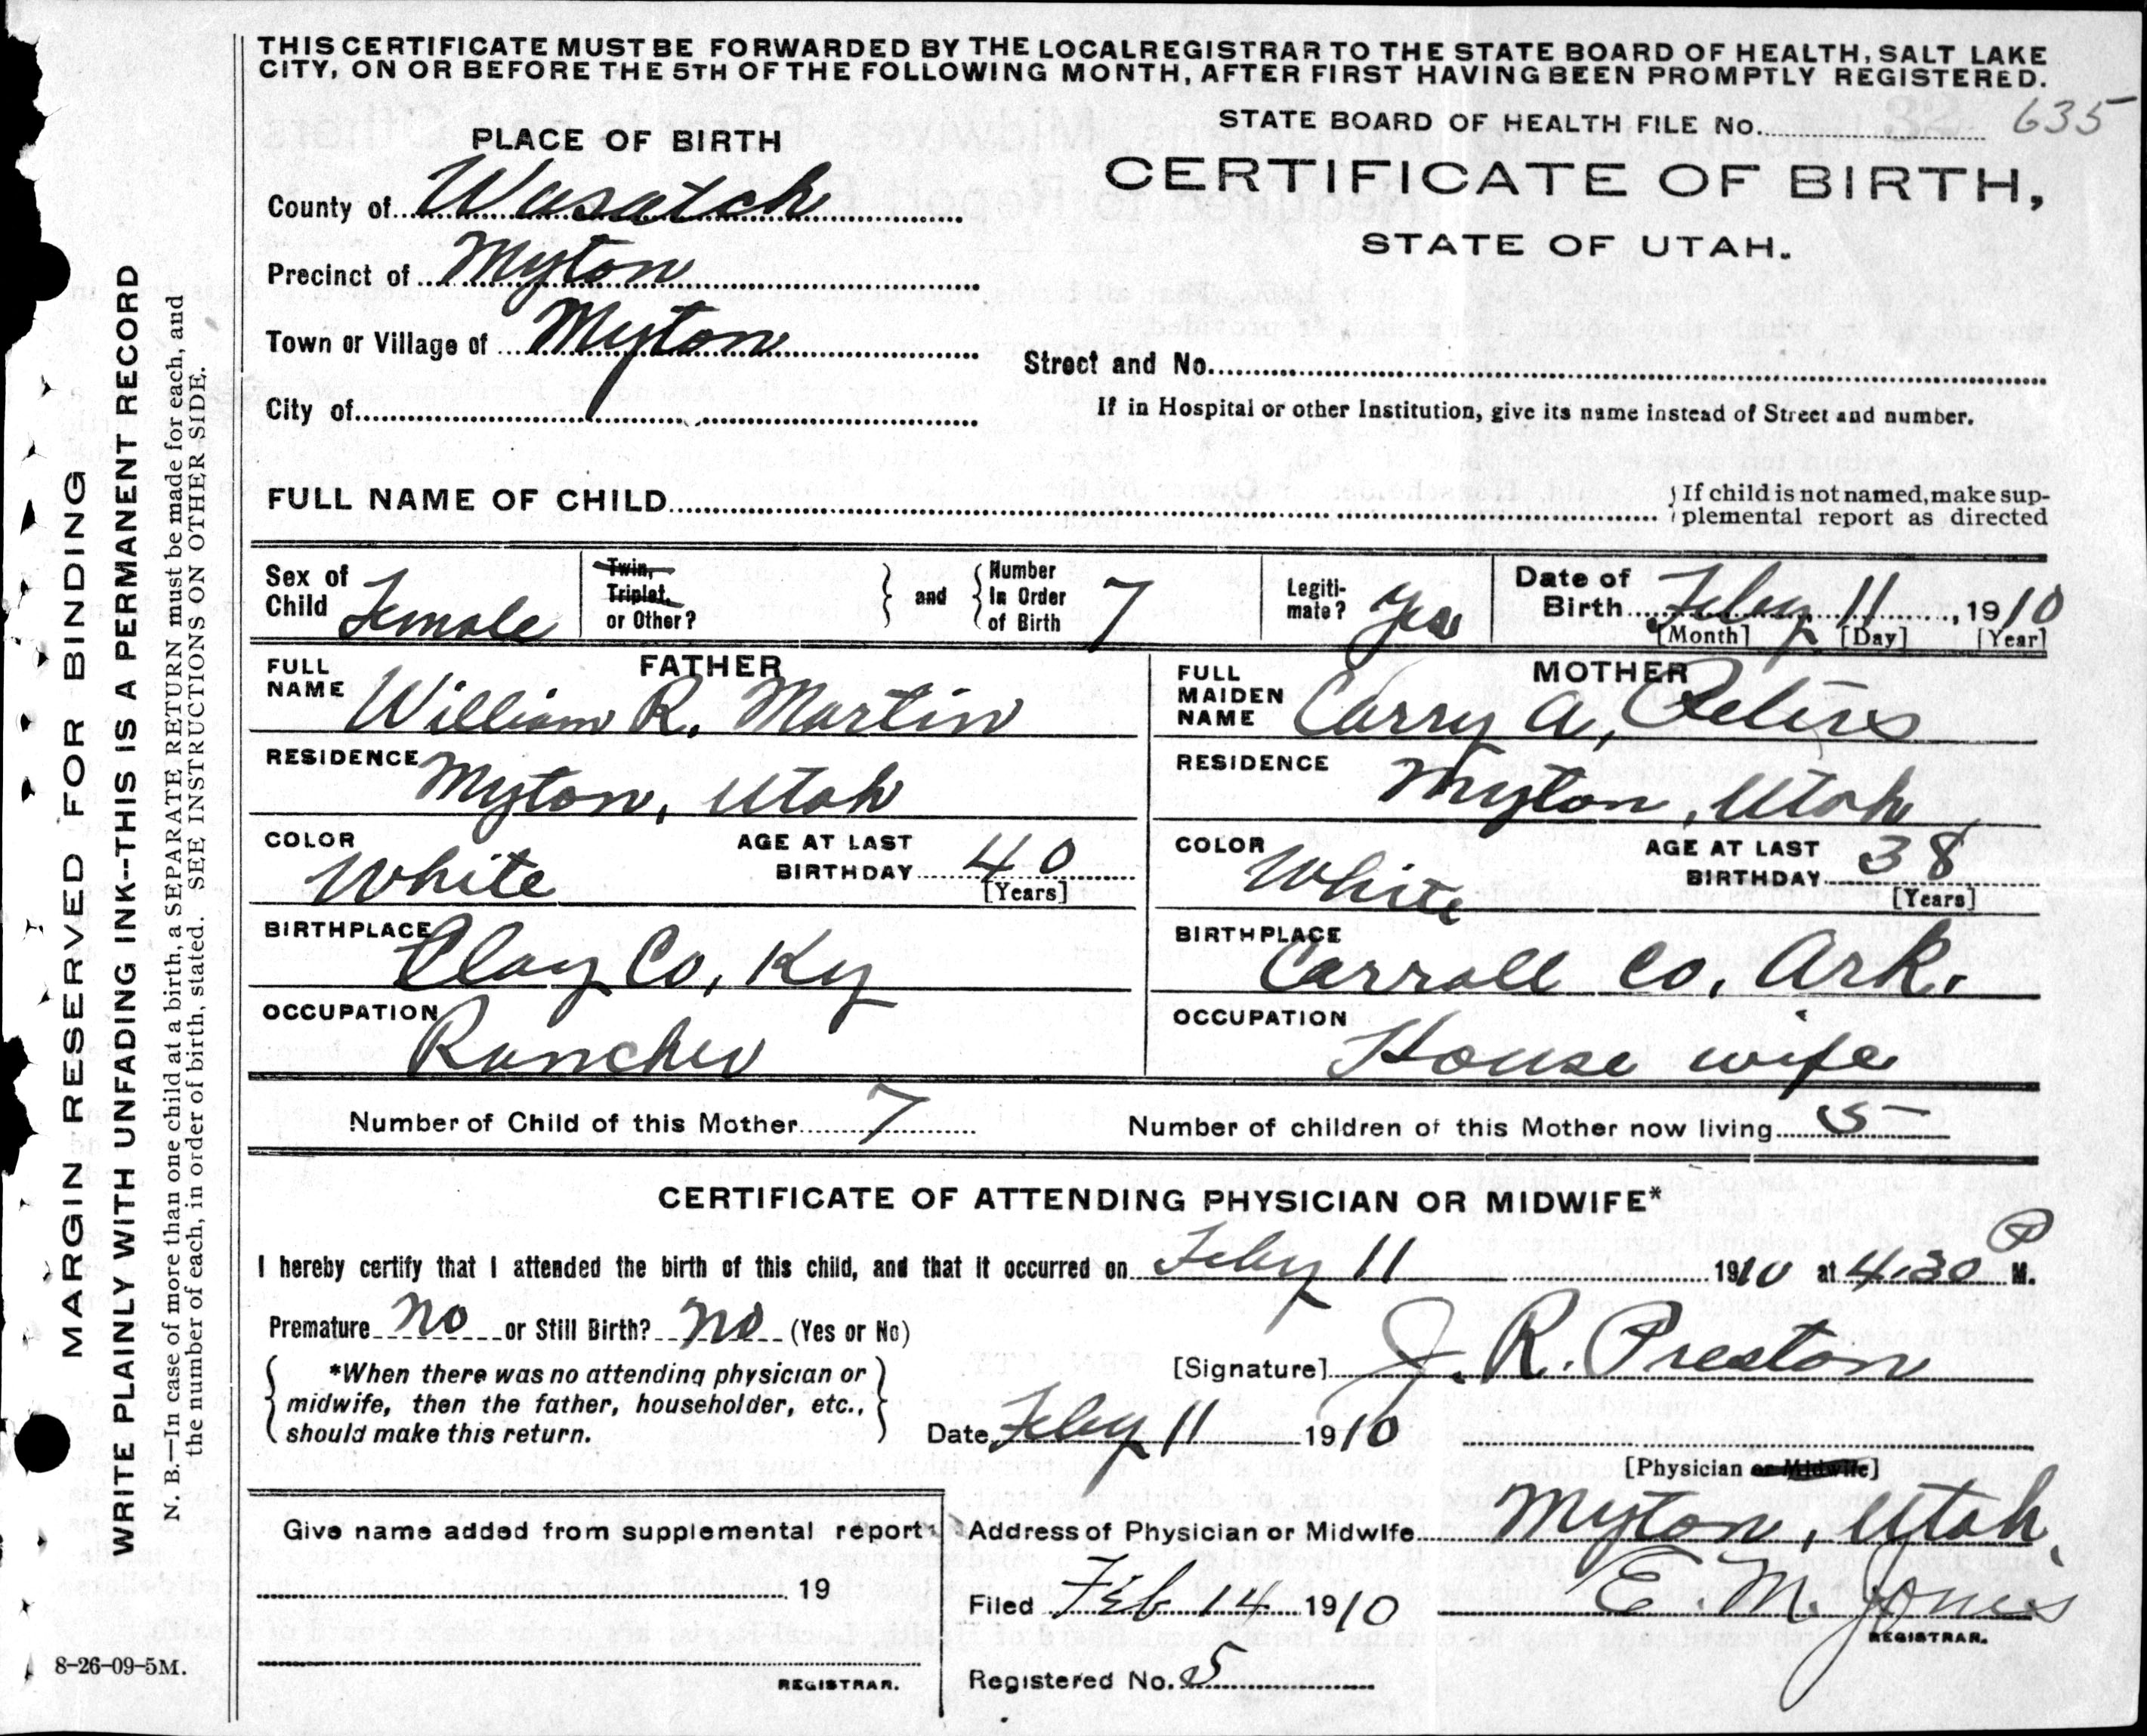 THIS CERTIFICATE MUST BE FORWARDED BY THE LOCAL REGISTRAR TO THE STATE BOARD OF HEALTH, SALT LAKE
CITY, ON OR BEFORE THE 5TH OF THE FOLLOWING MONTH, AFTER FIRST HAVING BEEN PROMPTLY REGISTERED.
STATE BOARD OF HEALTH FILE No. 635
PLACE OF BIRTH
CERTIFICATE OF BIRTH,
STATE OF UTAH.
County of Wasatch
Precinct of Myton
Town or Village of Myton
Street and No.
City of
If in Hospital or other Institution, give its name instead of Street and number.
FULL NAME OF CHILD
If child is not named, make sup-
plemental report as directed
Sex of Child Female
Twin,
Triplet,
or Other?
and
Number
In Order
of Birth 7
Legiti-
mate? Yes
Date of
Birth Feby 11, 1910
[Month] [Day] [Year]
FATHER
FULL
NAME William R. Martin
RESIDENCE Myton, Utah
COLOR White
AGE AT LAST
BIRTHDAY 40
[Years]
BIRTHPLACE Clay Co, Ky
OCCUPATION Rancher
MOTHER
FULL
MAIDEN
NAME Carry A, Peters
RESIDENCE Myton, Utah
COLOR White
AGE AT LAST
BIRTHDAY 38
[Years]
BIRTHPLACE Carroll Co. Ark.
OCCUPATION House wife
Number of Child of this Mother 7
Number of children of this Mother now living 5
CERTIFICATE OF ATTENDING PHYSICIAN OR MIDWIFE*
I hereby certify that I attended the birth of this child, and that it occurred on Feby 11 1910 at 4.30 P M.
Premature no or Still Birth? no (Yes or No)
*When there was no attending physician or
midwife, then the father, householder, etc.,
should make this return.
[Signature] J. R. Preston
Date Feby 11 1910
[Physician or Midwife]
Give name added from supplemental report
19
REGISTRAR.
Address of Physician or Midwife Myton, Utah.
Filed Feb 14 1910 E. M. Jones
REGISTRAR.
Registered No. 5
8-26-09-5M.
MARGIN RESERVED FOR BINDING
WRITE PLAINLY WITH UNFADING INK--THIS IS A PERMANENT RECORD
N. B.—In case of more than one child at a birth, a SEPARATE RETURN must be made for each, and
the number of each, in order of birth, stated. SEE INSTRUCTIONS ON OTHER SIDE.